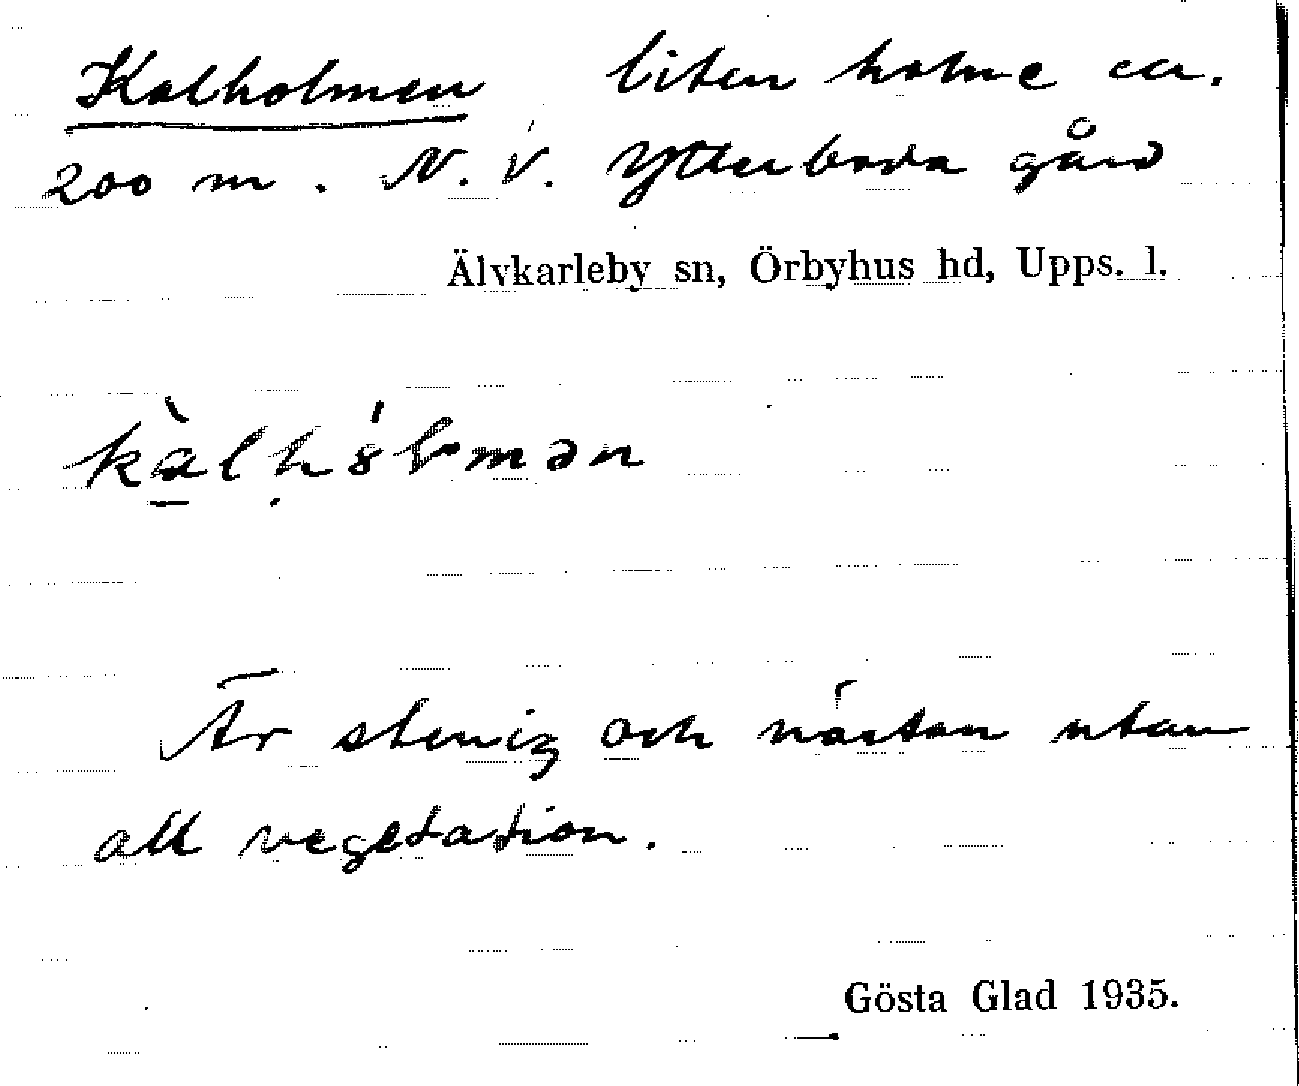 Kalholmen liten holme ca.
200 m. N.V. Ytterboda gård
Älvkarleby sn, Örbyhus hd, Upps. l.
Är stenig och nästan utan
all vegetation.
Gösta Glad 1935.